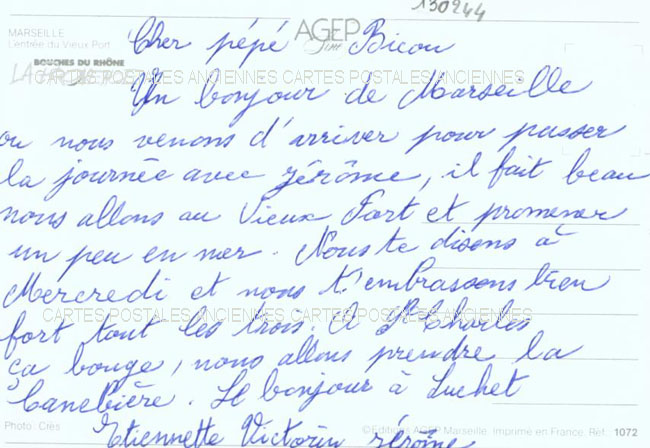 130244
MARSEILLE
L'entrée du Vieux Port
AGEP
BOUCHES DU RHÔNE
CARTES POSTALES ANCIENNES CARTES POSTALES ANCIENNES
Cher pépé Bicou
Un bonjour de Marseille
ou nous venons d'arriver pour passer
la journée avec Jérôme, il fait beau
nous allons au Vieux Port et promener
un peu en mer. Nous te disons à
Mercredi et nous t'embrassons bien
CARTES POSTALES ANCIENNES CARTES POSTALES ANCIENNES
fort tout les trois. A St Charles
ça bouge, nous allons prendre la
Canebière. Le bonjour à Luchet
Photo: Crès
© Editions AGEP Marseille. Imprimé en France. Réf. 1072
Etiennette Victorin Jérôme